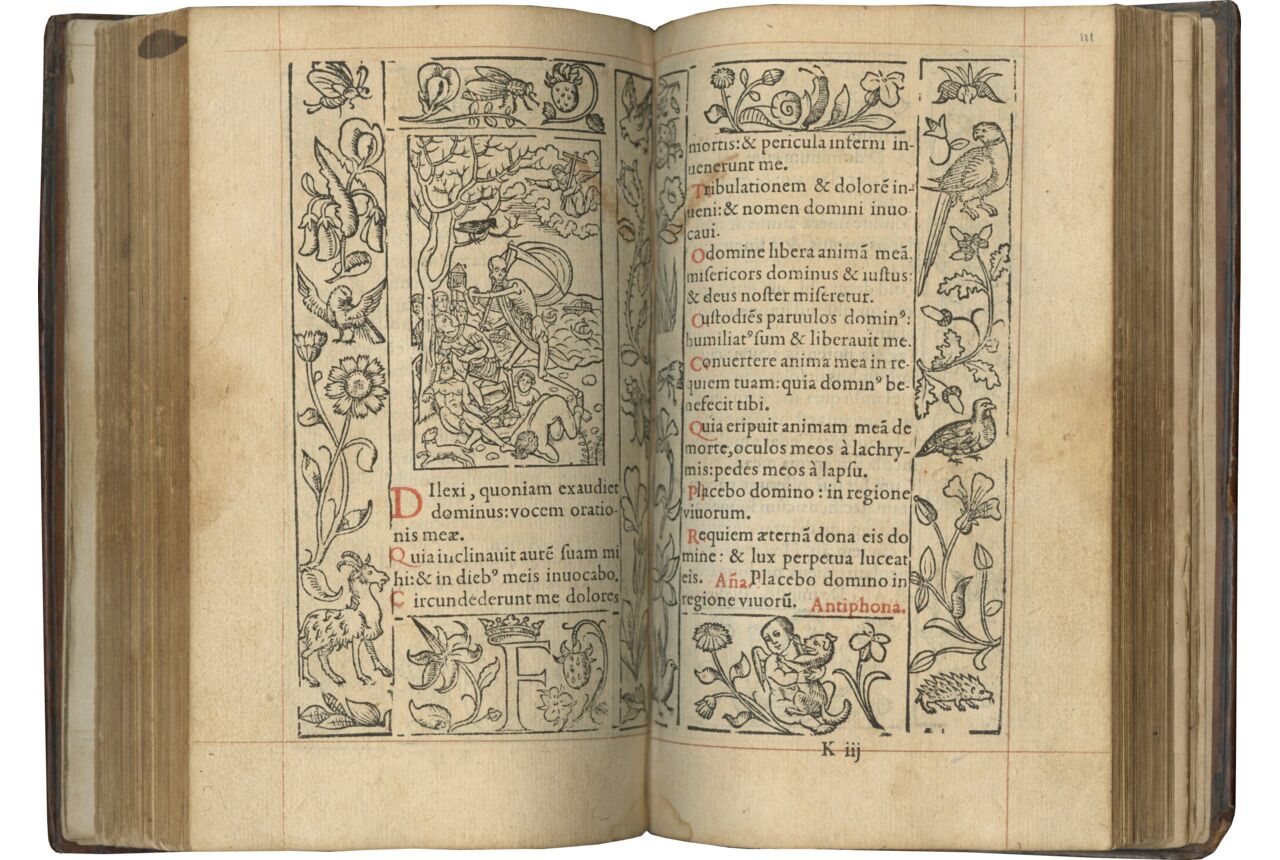 DIlexi, quoniam exaudiet
dominus: vocem oratio-
nis meæ.
Quia inclinauit aurē ſuam mi
hi: & in dieb⁹ meis inuocabo.
Circundederunt me dolores
F
mortis: & pericula inferni in-
uenerunt me.
Tribulationem & dolorē in-
ueni: & nomen domini inuo
caui.
O domine libera animā meā.
miſericors dominus & iuſtus:
& deus noſter miſeretur.
Cuſtodiēs paruulos domin⁹:
humiliat⁹ ſum & liberauit me.
Conuertere anima mea in re-
quiem tuam: quia domin⁹ be-
nefecit tibi.
Quia eripuit animam meā de
morte, oculos meos à lachry-
mis: pedes meos à lapſu.
Placebo domino: in regione
viuorum.
Requiem æternā dona eis do
mine: & lux perpetua luceat
eis. Aña. Placebo domino in
regione viuorū. Antiphona.
K iij